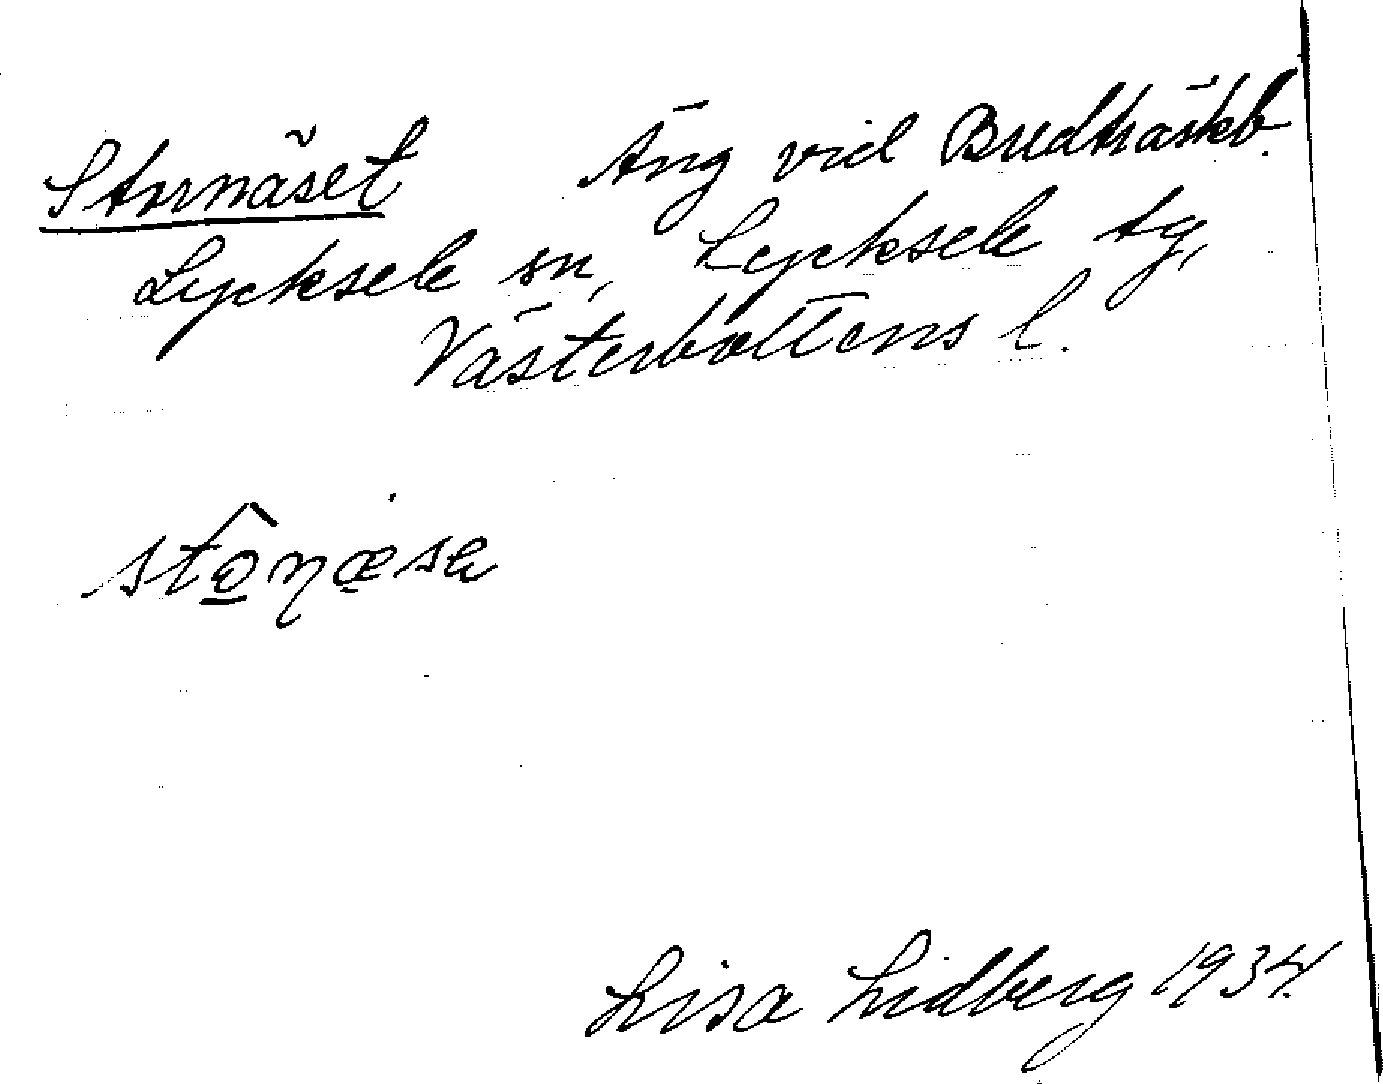 Stornäset Äng vid Bredträskb.
Lycksele sn, Lycksele tg,
Västerbottens l.
stôn̨æsɐ
Lisa Lidberg 1934.